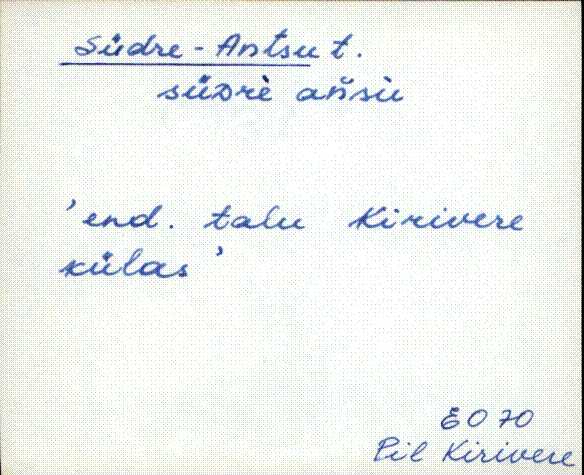 Südre-Antsu t.
süᴅrè ańsù
'end. talu Kirivere
külas'
EO 70
Pil Kirivere